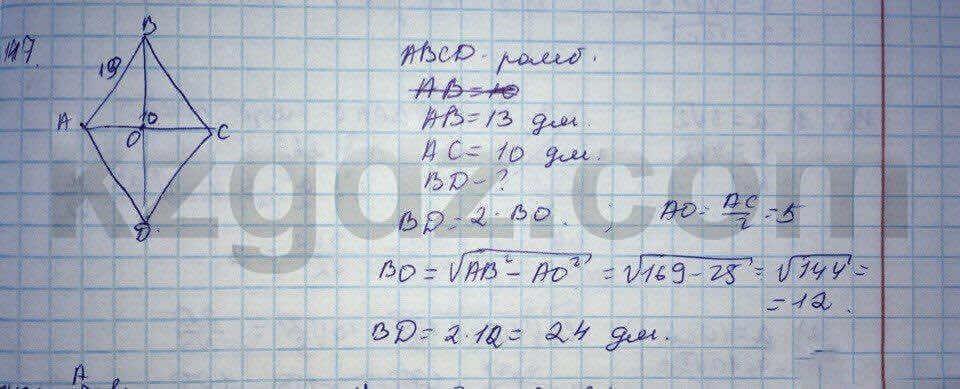 147.
B
13
A
O
C
D.
ABCD - ромб.
AB = 10
AB = 13 дм.
AC = 10 дм.
BD - ?
BD = 2 · BO. ; AO = AC/2 = 5
BO = √AB² - AO² = √169 - 25 = √144 =
= 12.
BD = 2·12 = 24 дм.
A
kzgdz.com